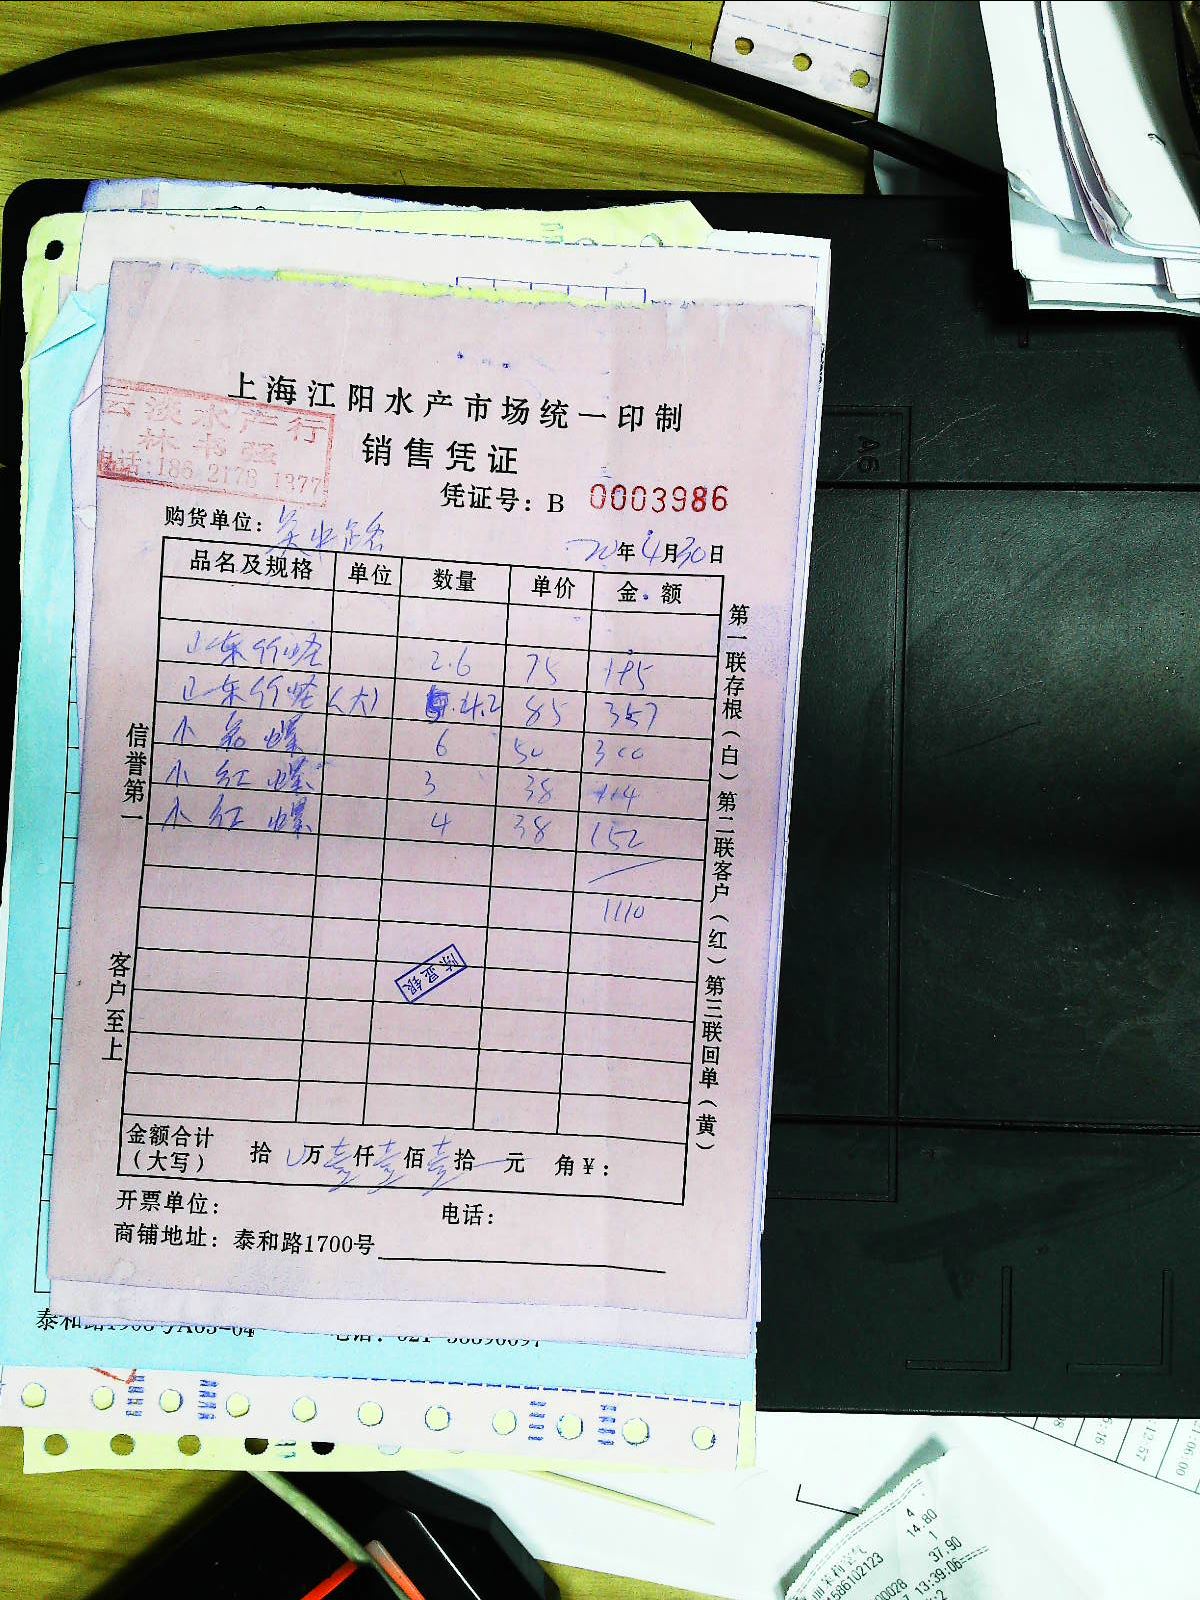 上海江阳水产市场统一印制
云淡水产行
林书强
电话:186 2178 1377
销售凭证
凭证号: B 0003986
购货单位: 吴中路
20年4月30日
品名及规格 单位 数量 单价 金额
山东竹蛏 2.6 75 195
山东竹蛏(大) 4.2 85 357
小 螺 6 50 300
小红螺 3 38 114
小红螺 4 38 152
1110
信誉第一
客户至上
第一联存根(白)第二联客户(红)第三联回单(黄)
金额合计
(大写) 拾 万壹仟壹佰壹拾 元 角¥:
开票单位: 电话:
商铺地址: 泰和路1700号
A6
4
14.80
1
37.90
13:39:06